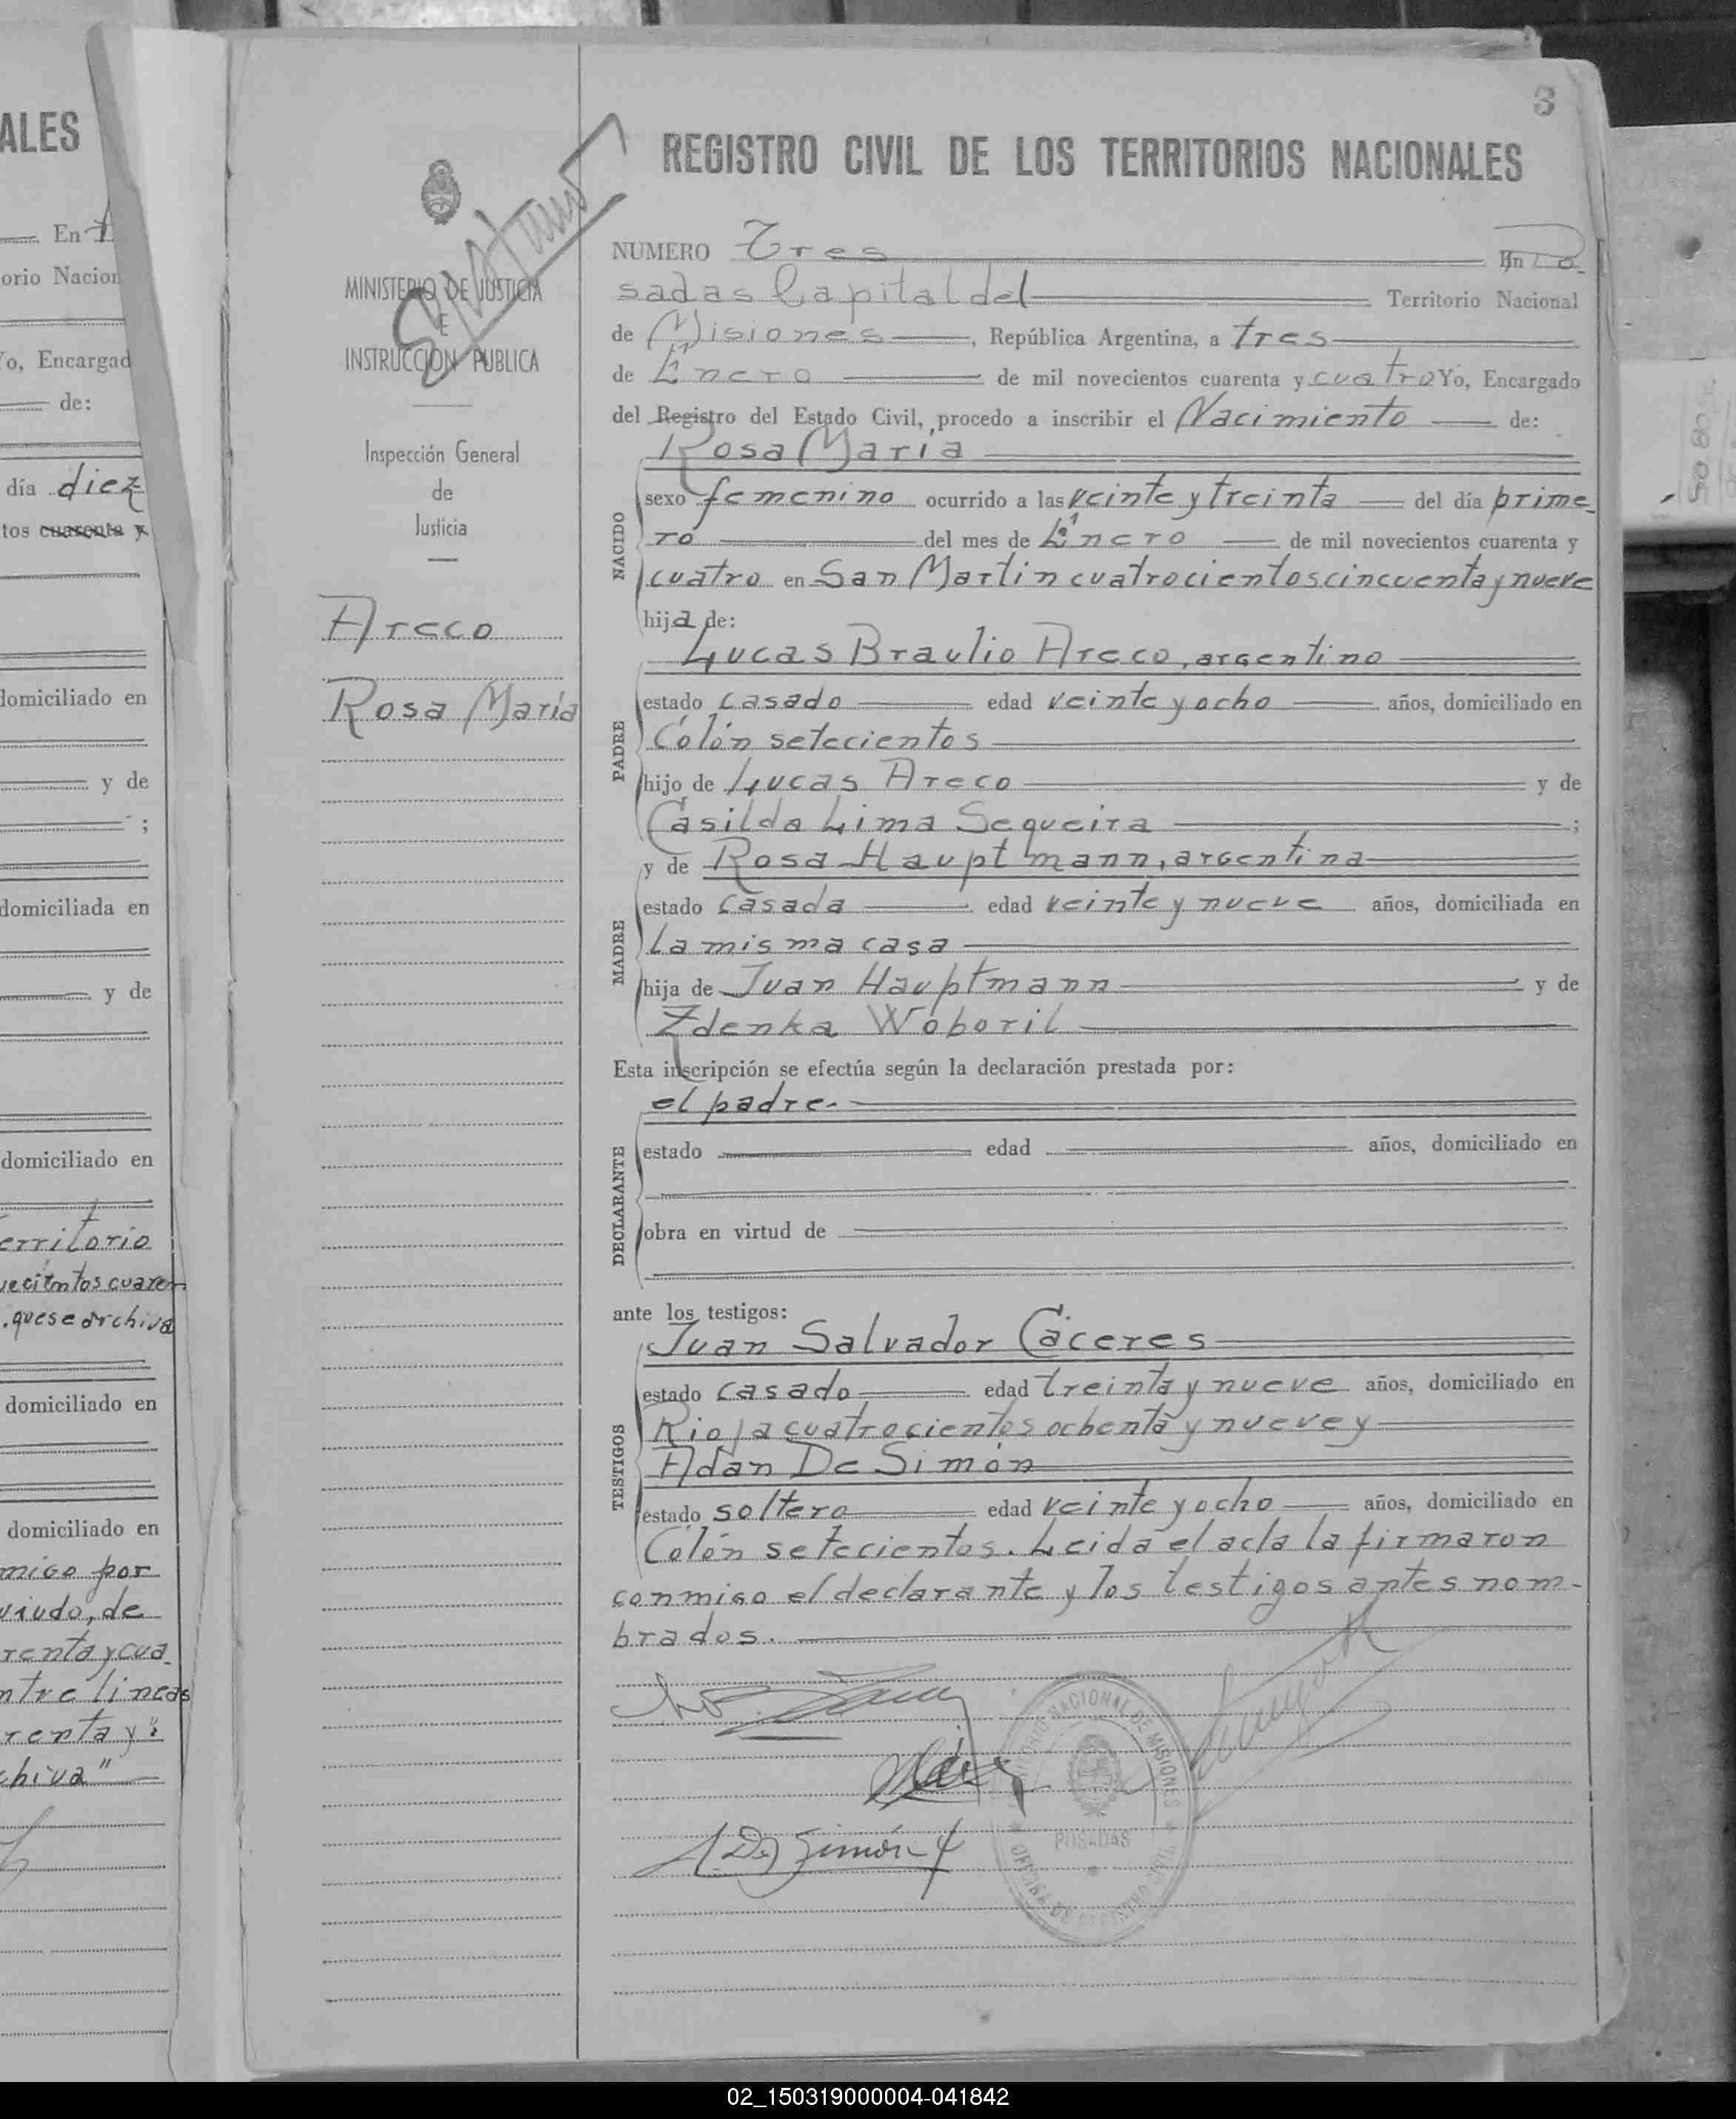 ALES
En
orio Nacion
Yo, Encargad
de:
día diez
tos cuarenta y
domiciliado en
y de
;
domiciliada en
y de
domiciliado en
erritorio
vecientos cuaren
. que se archiva
domiciliado en
domiciliado en
migo por
viudo, de
renta y cua
ntre lineas
renta y":
chiva"
3
MINISTERIO DE JUSTICIA
E
INSTRUCCION PUBLICA
Inspección General
de
Justicia
Areco
Rosa María
REGISTRO CIVIL DE LOS TERRITORIOS NACIONALES
NUMERO Tres En Po-
sadas Capital del Territorio Nacional
de Misiones, República Argentina, a tres
de Enero de mil novecientos cuarenta y cuatro Yo, Encargado
del Registro del Estado Civil, procedo a inscribir el Nacimiento de:
Rosa María
NACIDO
sexo femenino ocurrido a las veinte y treinta del día prime
ro del mes de Enero de mil novecientos cuarenta y
cuatro en San Martin cuatrocientos cincuenta y nueve
hija de:
PADRE
Lucas Braulio Areco, argentino
estado casado edad veinte y ocho años, domiciliado en
Colón setecientos
hijo de Lucas Areco y de
Casilda Lima Sequeira ;
MADRE
y de Rosa Hauptmann, argentina
estado casada edad veinte y nueve años, domiciliada en
la misma casa
hija de Juan Hauptmann y de
Zdenka Woboril
Esta inscripción se efectúa según la declaración prestada por:
el padre.
DECLARANTE
estado edad años, domiciliado en
obra en virtud de
ante los testigos:
TESTIGOS
Juan Salvador Cáceres
estado casado edad treinta y nueve años, domiciliado en
Rioja cuatrocientos ochenta y nueve y
Adan De Simón
estado soltero edad veinte y ocho años, domiciliado en
Colón setecientos. Leida el acta la firmaron
conmigo el declarante y los testigos antes nom-
brados.
A. De Simón
TERRITORIO NACIONAL DE MISIONES
POSADAS
OFICINA DE REGISTRO CIVIL
02_150319000004-041842